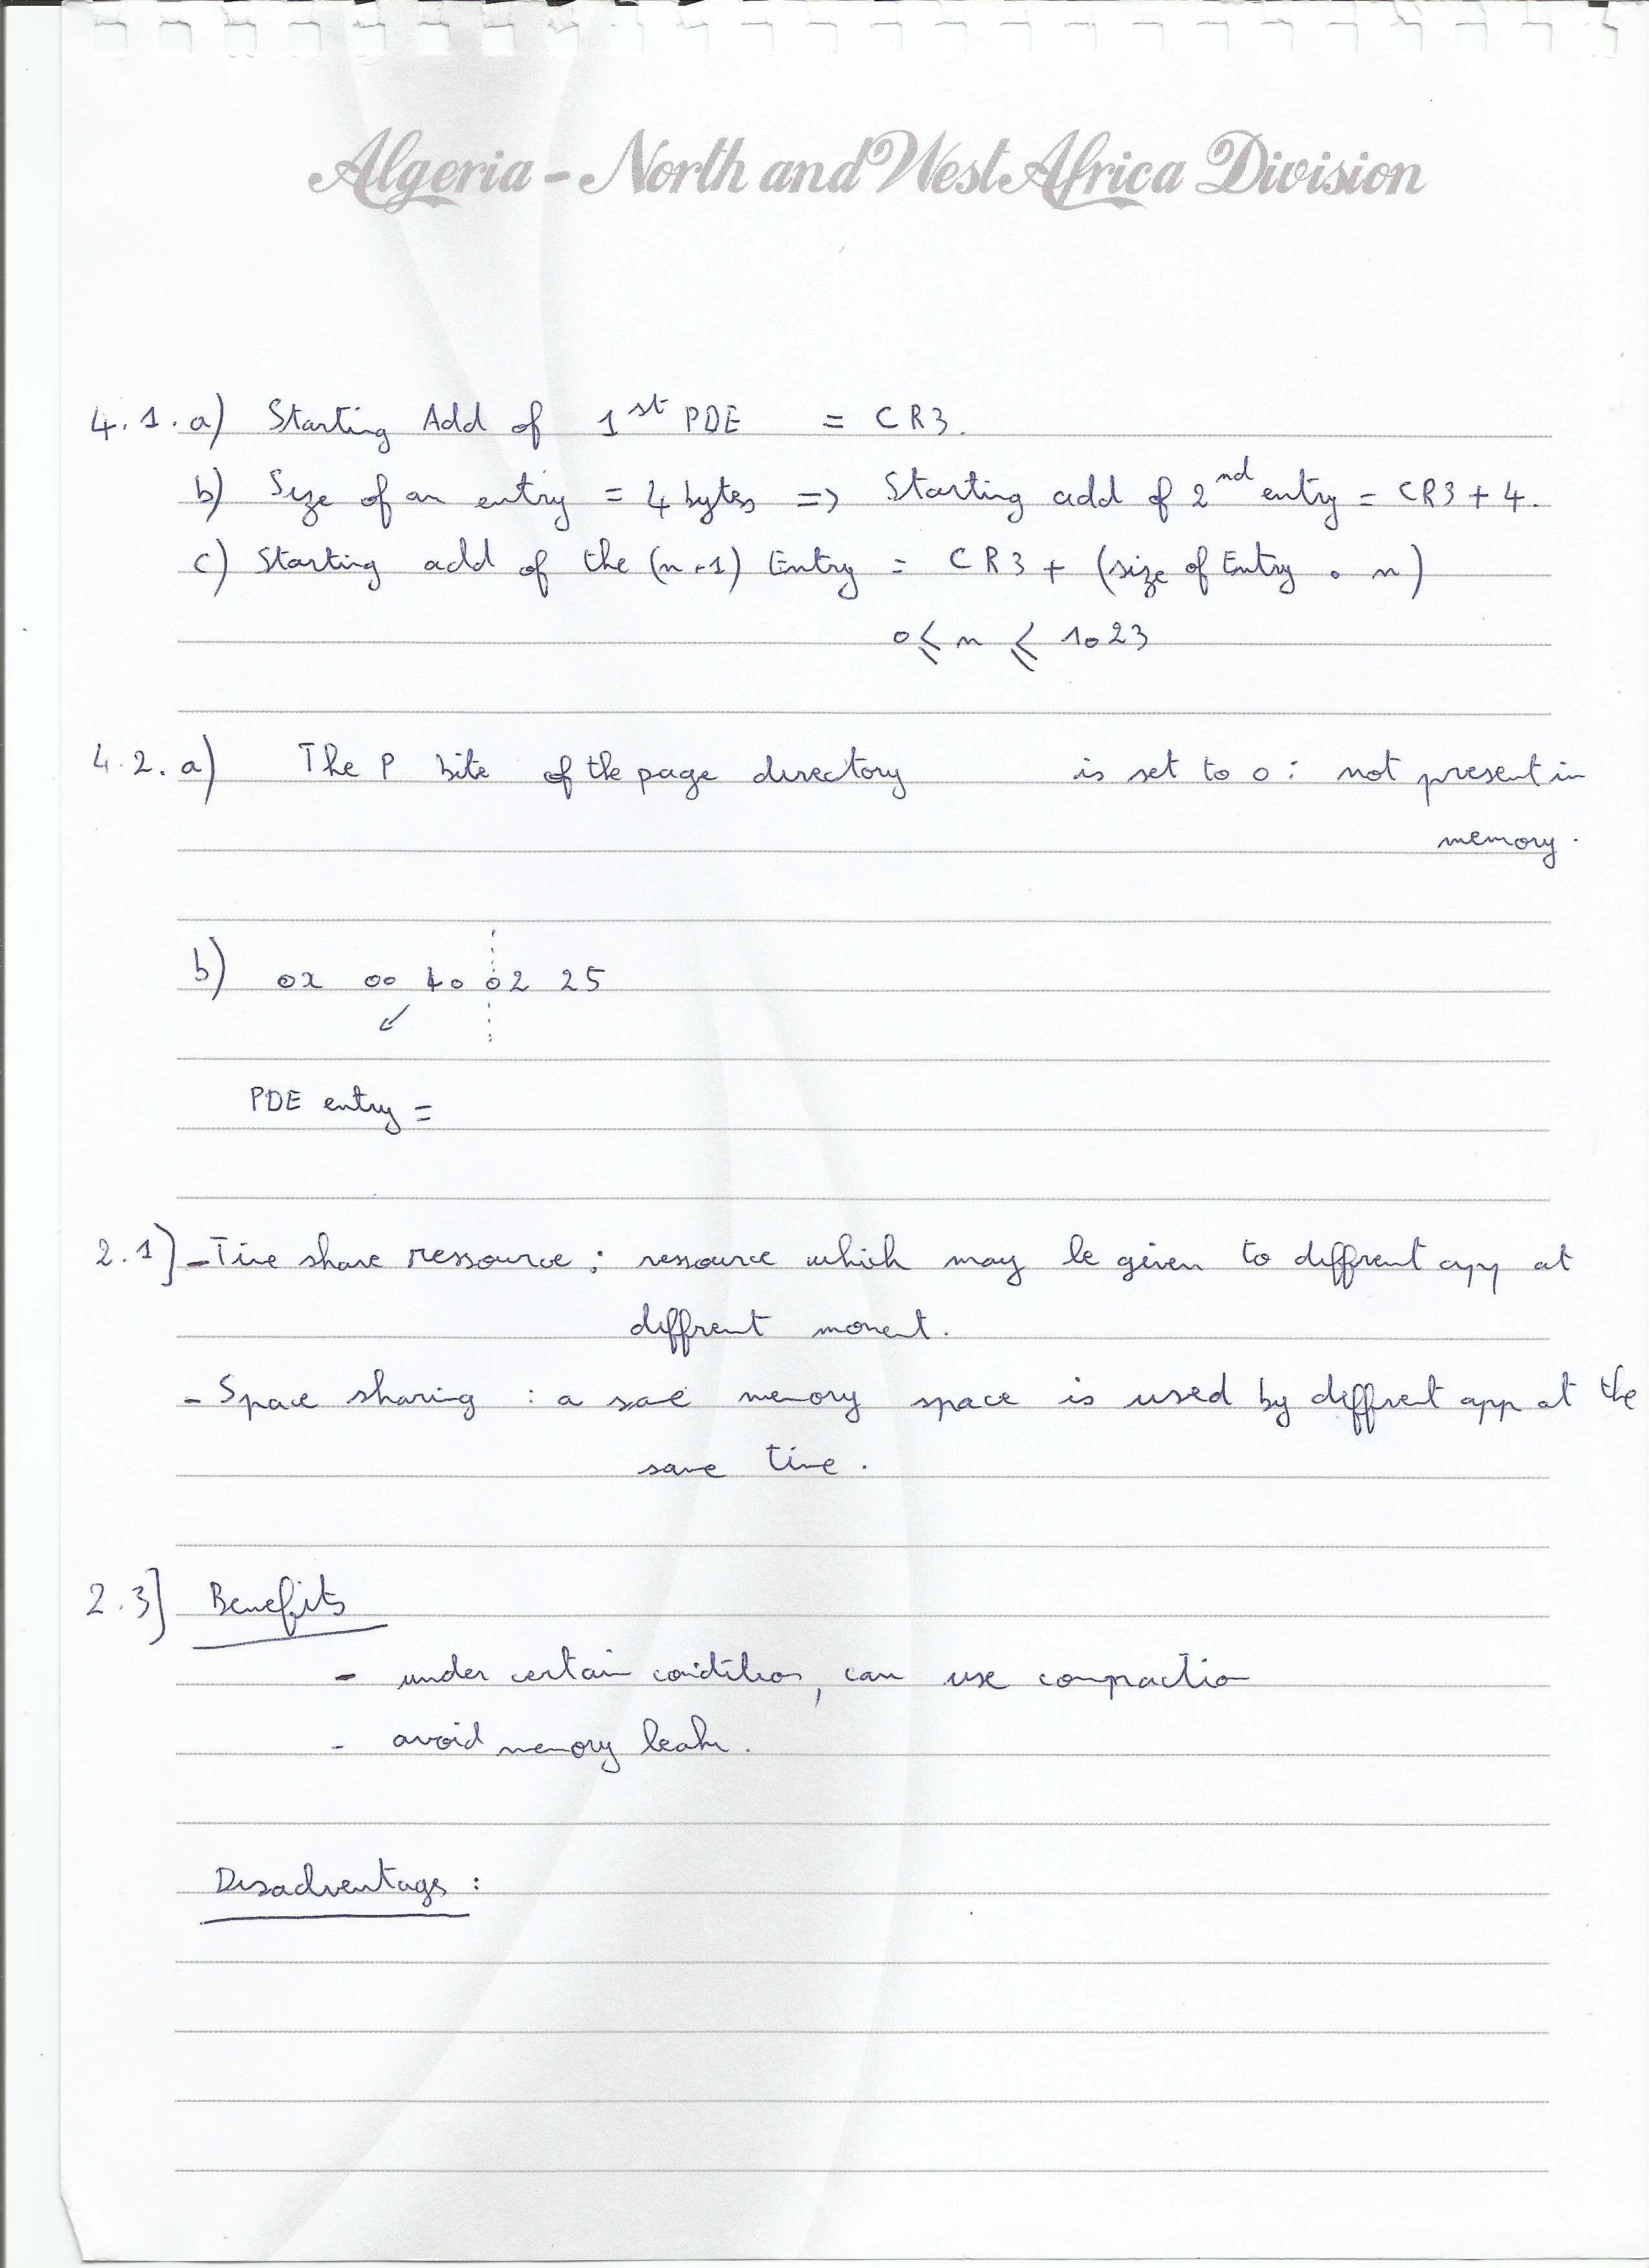 Algeria - North and West Africa Division
4.1.a) Starting Add of 1st PDE = CR3.
b) Size of an entry = 4 bytes => Starting add of 2nd entry = CR3 + 4.
c) Starting add of the (n+1) Entry = CR3 + (size of Entry * n)
0 ⩽ n ⩽ 1023
4.2.a) The P bite of the page directory is set to 0 : not present in
memory.
b) 0x 00 40 02 25
PDE entry =
2.1] - Time share ressource : ressource which may be given to diffrent app at
diffrent moment.
- Space sharing : a same memory space is used by diffrent app at the
same time.
2.3] Benefits
- under certain condition, can use compaction
- avoid memory leak.
Disadventages :